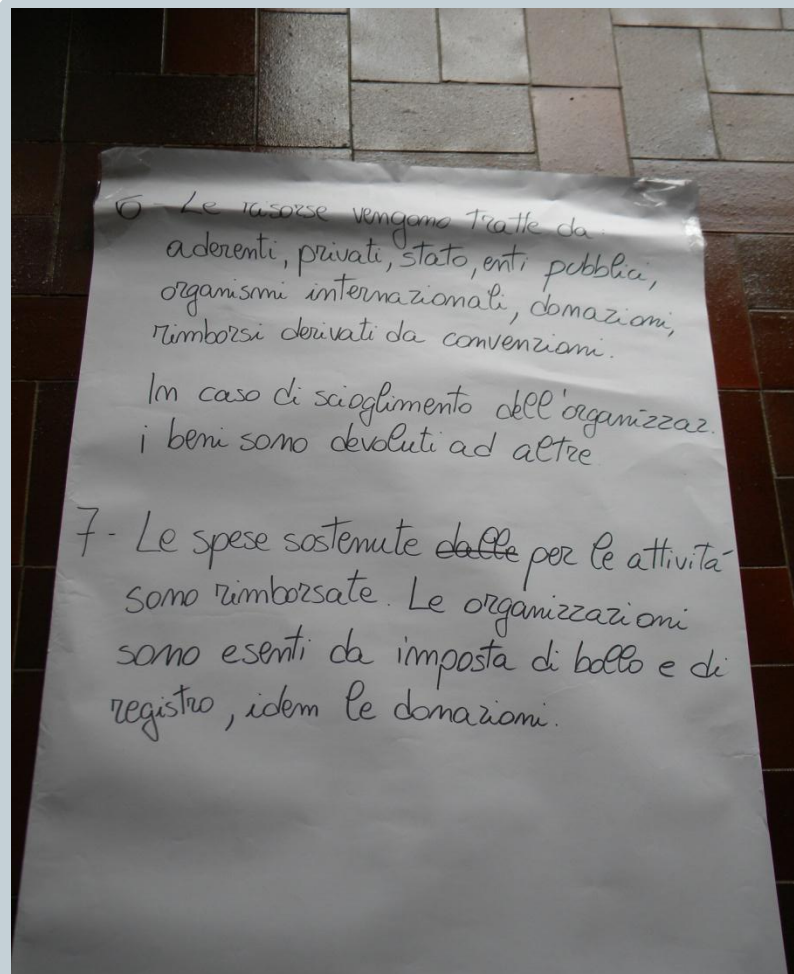 6 - Le risorse vengono tratte da
aderenti, privati, stato, enti pubblici,
organismi internazionali, donazioni,
rimborsi derivati da convenzioni.
In caso di scioglimento dell'organizzaz.
i beni sono devoluti ad altre
7 - Le spese sostenute dalle per le attività
sono rimborsate. Le organizzazioni
sono esenti da imposta di bollo e di
registro, idem le donazioni.